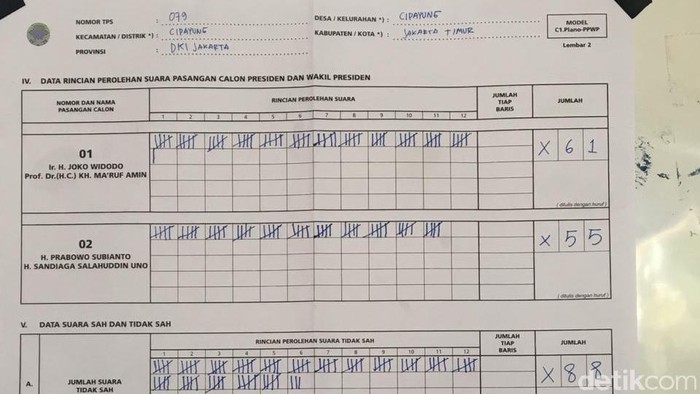 NOMOR TPS : 079
DESA / KELURAHAN *) : CIPAYUNG
KECAMATAN / DISTRIK *) : CIPAYUNG
KABUPATEN / KOTA *) : JAKARTA TIMUR
PROVINSI : DKI JAKARTA
MODEL
C1.Plano-PPWP
Lembar 2
IV. DATA RINCIAN PEROLEHAN SUARA PASANGAN CALON PRESIDEN DAN WAKIL PRESIDEN
NOMOR DAN NAMA
PASANGAN CALON
RINCIAN PEROLEHAN SUARA
1 2 3 4 5 6 7 8 9 10 11 12
JUMLAH
TIAP
BARIS
JUMLAH
01
Ir. H. JOKO WIDODO
Prof. Dr.(H.C.) KH. MA'RUF AMIN
X 6 1
( ditulis dengan huruf )
02
H. PRABOWO SUBIANTO
H. SANDIAGA SALAHUDDIN UNO
X 5 5
( ditulis dengan huruf )
V. DATA SUARA SAH DAN TIDAK SAH
RINCIAN PEROLEHAN SUARA TIDAK SAH
1 2 3 4 5 6 7 8 9 10 11 12
JUMLAH
TIAP
BARIS
JUMLAH
A.
JUMLAH SUARA
TIDAK SAH
X 8 8
detikcom